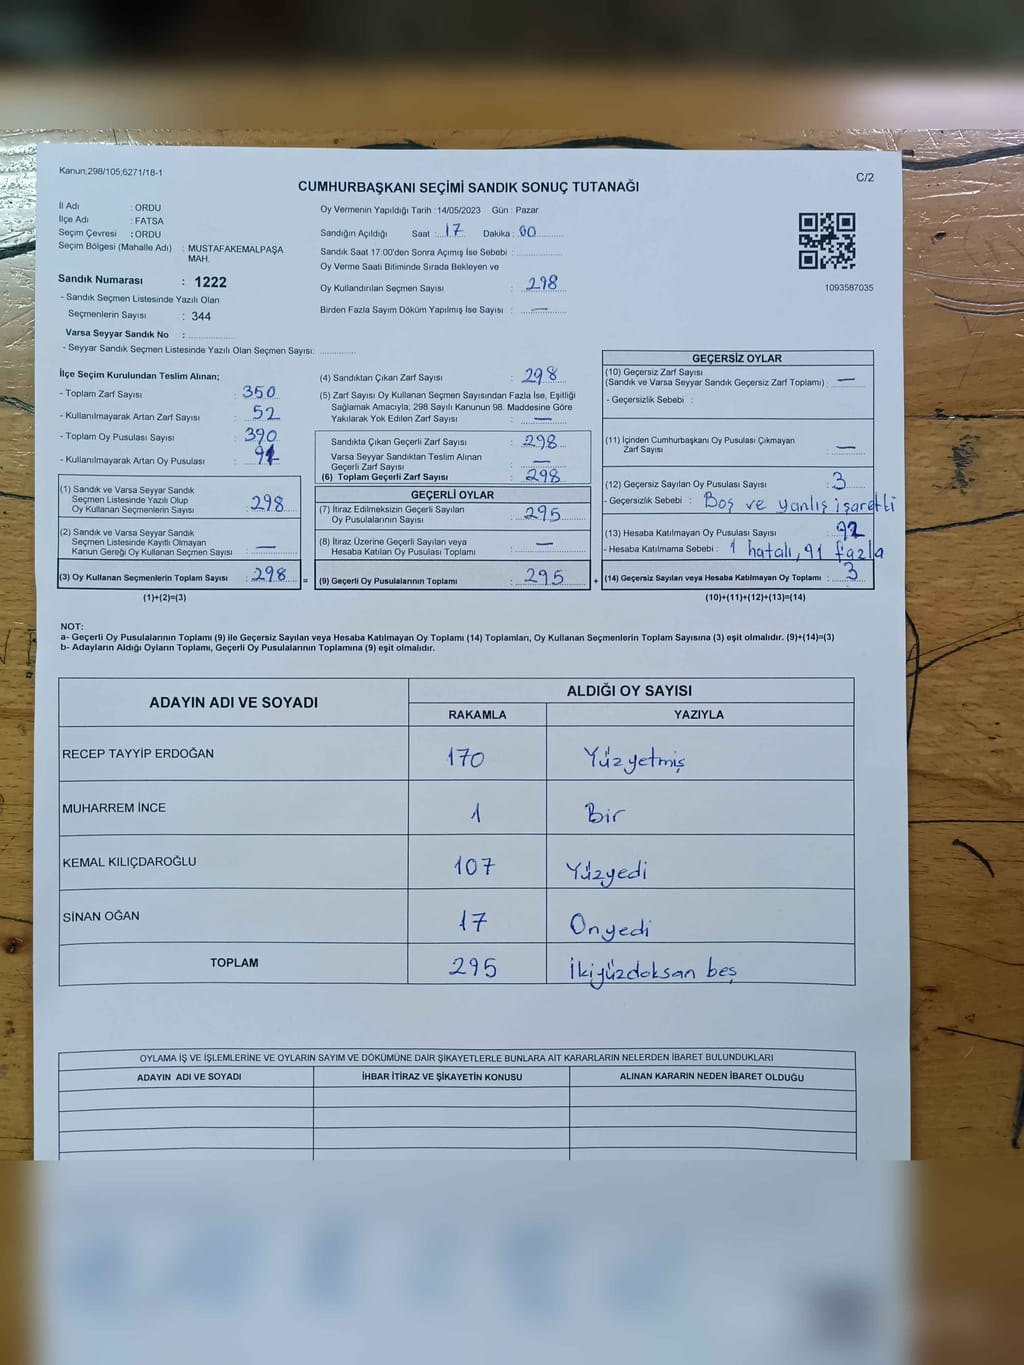 Kanun;298/105;6271/18-1
C/2
CUMHURBAŞKANI SEÇİMİ SANDIK SONUÇ TUTANAĞI
İl Adı : ORDU
İlçe Adı : FATSA
Seçim Çevresi : ORDU
Seçim Bölgesi (Mahalle Adı) : MUSTAFAKEMALPAŞA
MAH.
Sandık Numarası : 1222
- Sandık Seçmen Listesinde Yazılı Olan
Seçmenlerin Sayısı : 344
Varsa Seyyar Sandık No : ................
- Seyyar Sandık Seçmen Listesinde Yazılı Olan Seçmen Sayısı: .............
Oy Vermenin Yapıldığı Tarih : 14/05/2023 Gün : Pazar
Sandığın Açıldığı Saat : 17 Dakika : 00
Sandık Saat 17:00'den Sonra Açımış İse Sebebi : ................
Oy Verme Saati Bitiminde Sırada Bekleyen ve
Oy Kullandırılan Seçmen Sayısı : 298
Birden Fazla Sayım Döküm Yapılmış İse Sayısı : —
1093587035
İlçe Seçim Kurulundan Teslim Alınan;
- Toplam Zarf Sayısı : 350
- Kullanılmayarak Artan Zarf Sayısı : 52
- Toplam Oy Pusulası Sayısı : 390
- Kullanılmayarak Artan Oy Pusulası :
(1) Sandık ve Varsa Seyyar Sandık
Seçmen Listesinde Yazılı Olup
Oy Kullanan Seçmenlerin Sayısı : 298
(2) Sandık ve Varsa Seyyar Sandık
Seçmen Listesinde Kayıtlı Olmayan
Kanun Gereği Oy Kullanan Seçmen Sayısı : —
(3) Oy Kullanan Seçmenlerin Toplam Sayısı : 298 =
(1)+(2)=(3)
(4) Sandıktan Çıkan Zarf Sayısı : 298
(5) Zarf Sayısı Oy Kullanan Seçmen Sayısından Fazla İse, Eşitliği
Sağlamak Amacıyla; 298 Sayılı Kanunun 98. Maddesine Göre
Yakılarak Yok Edilen Zarf Sayısı : —
Sandıkta Çıkan Geçerli Zarf Sayısı : 298
Varsa Seyyar Sandıktan Teslim Alınan
Geçerli Zarf Sayısı : —
(6) Toplam Geçerli Zarf Sayısı : 298
GEÇERLİ OYLAR
(7) İtiraz Edilmeksizin Geçerli Sayılan
Oy Pusulalarının Sayısı : 295
(8) İtiraz Üzerine Geçerli Sayılan veya
Hesaba Katılan Oy Pusulası Toplamı : —
(9) Geçerli Oy Pusulalarının Toplamı : 295 +
GEÇERSİZ OYLAR
(10) Geçersiz Zarf Sayısı
(Sandık ve Varsa Seyyar Sandık Geçersiz Zarf Toplamı) : —
- Geçersizlik Sebebi :
(11) İçinden Cumhurbaşkanı Oy Pusulası Çıkmayan
Zarf Sayısı : —
(12) Geçersiz Sayılan Oy Pusulası Sayısı : 3
- Geçersizlik Sebebi : Boş ve yanlış işaretli
(13) Hesaba Katılmayan Oy Pusulası Sayısı : 92
- Hesaba Katılmama Sebebi : 1 hatalı, 91 fazla
(14) Geçersiz Sayılan veya Hesaba Katılmayan Oy Toplamı : 3
(10)+(11)+(12)+(13)=(14)
NOT:
a- Geçerli Oy Pusulalarının Toplamı (9) ile Geçersiz Sayılan veya Hesaba Katılmayan Oy Toplamı (14) Toplamları, Oy Kullanan Seçmenlerin Toplam Sayısına (3) eşit olmalıdır. (9)+(14)=(3)
b- Adayların Aldığı Oyların Toplamı, Geçerli Oy Pusulalarının Toplamına (9) eşit olmalıdır.
ADAYIN ADI VE SOYADI ALDIĞI OY SAYISI
RAKAMLA YAZIYLA
RECEP TAYYİP ERDOĞAN 170 Yüzyetmiş
MUHARREM İNCE 1 Bir
KEMAL KILIÇDAROĞLU 107 Yüzyedi
SİNAN OĞAN 17 Onyedi
TOPLAM 295 İkiyüzdoksan beş
OYLAMA İŞ VE İŞLEMLERİNE VE OYLARIN SAYIM VE DÖKÜMÜNE DAİR ŞİKAYETLERLE BUNLARA AİT KARARLARIN NELERDEN İBARET BULUNDUKLARI
ADAYIN ADI VE SOYADI İHBAR İTİRAZ VE ŞİKAYETİN KONUSU ALINAN KARARIN NEDEN İBARET OLDUĞU